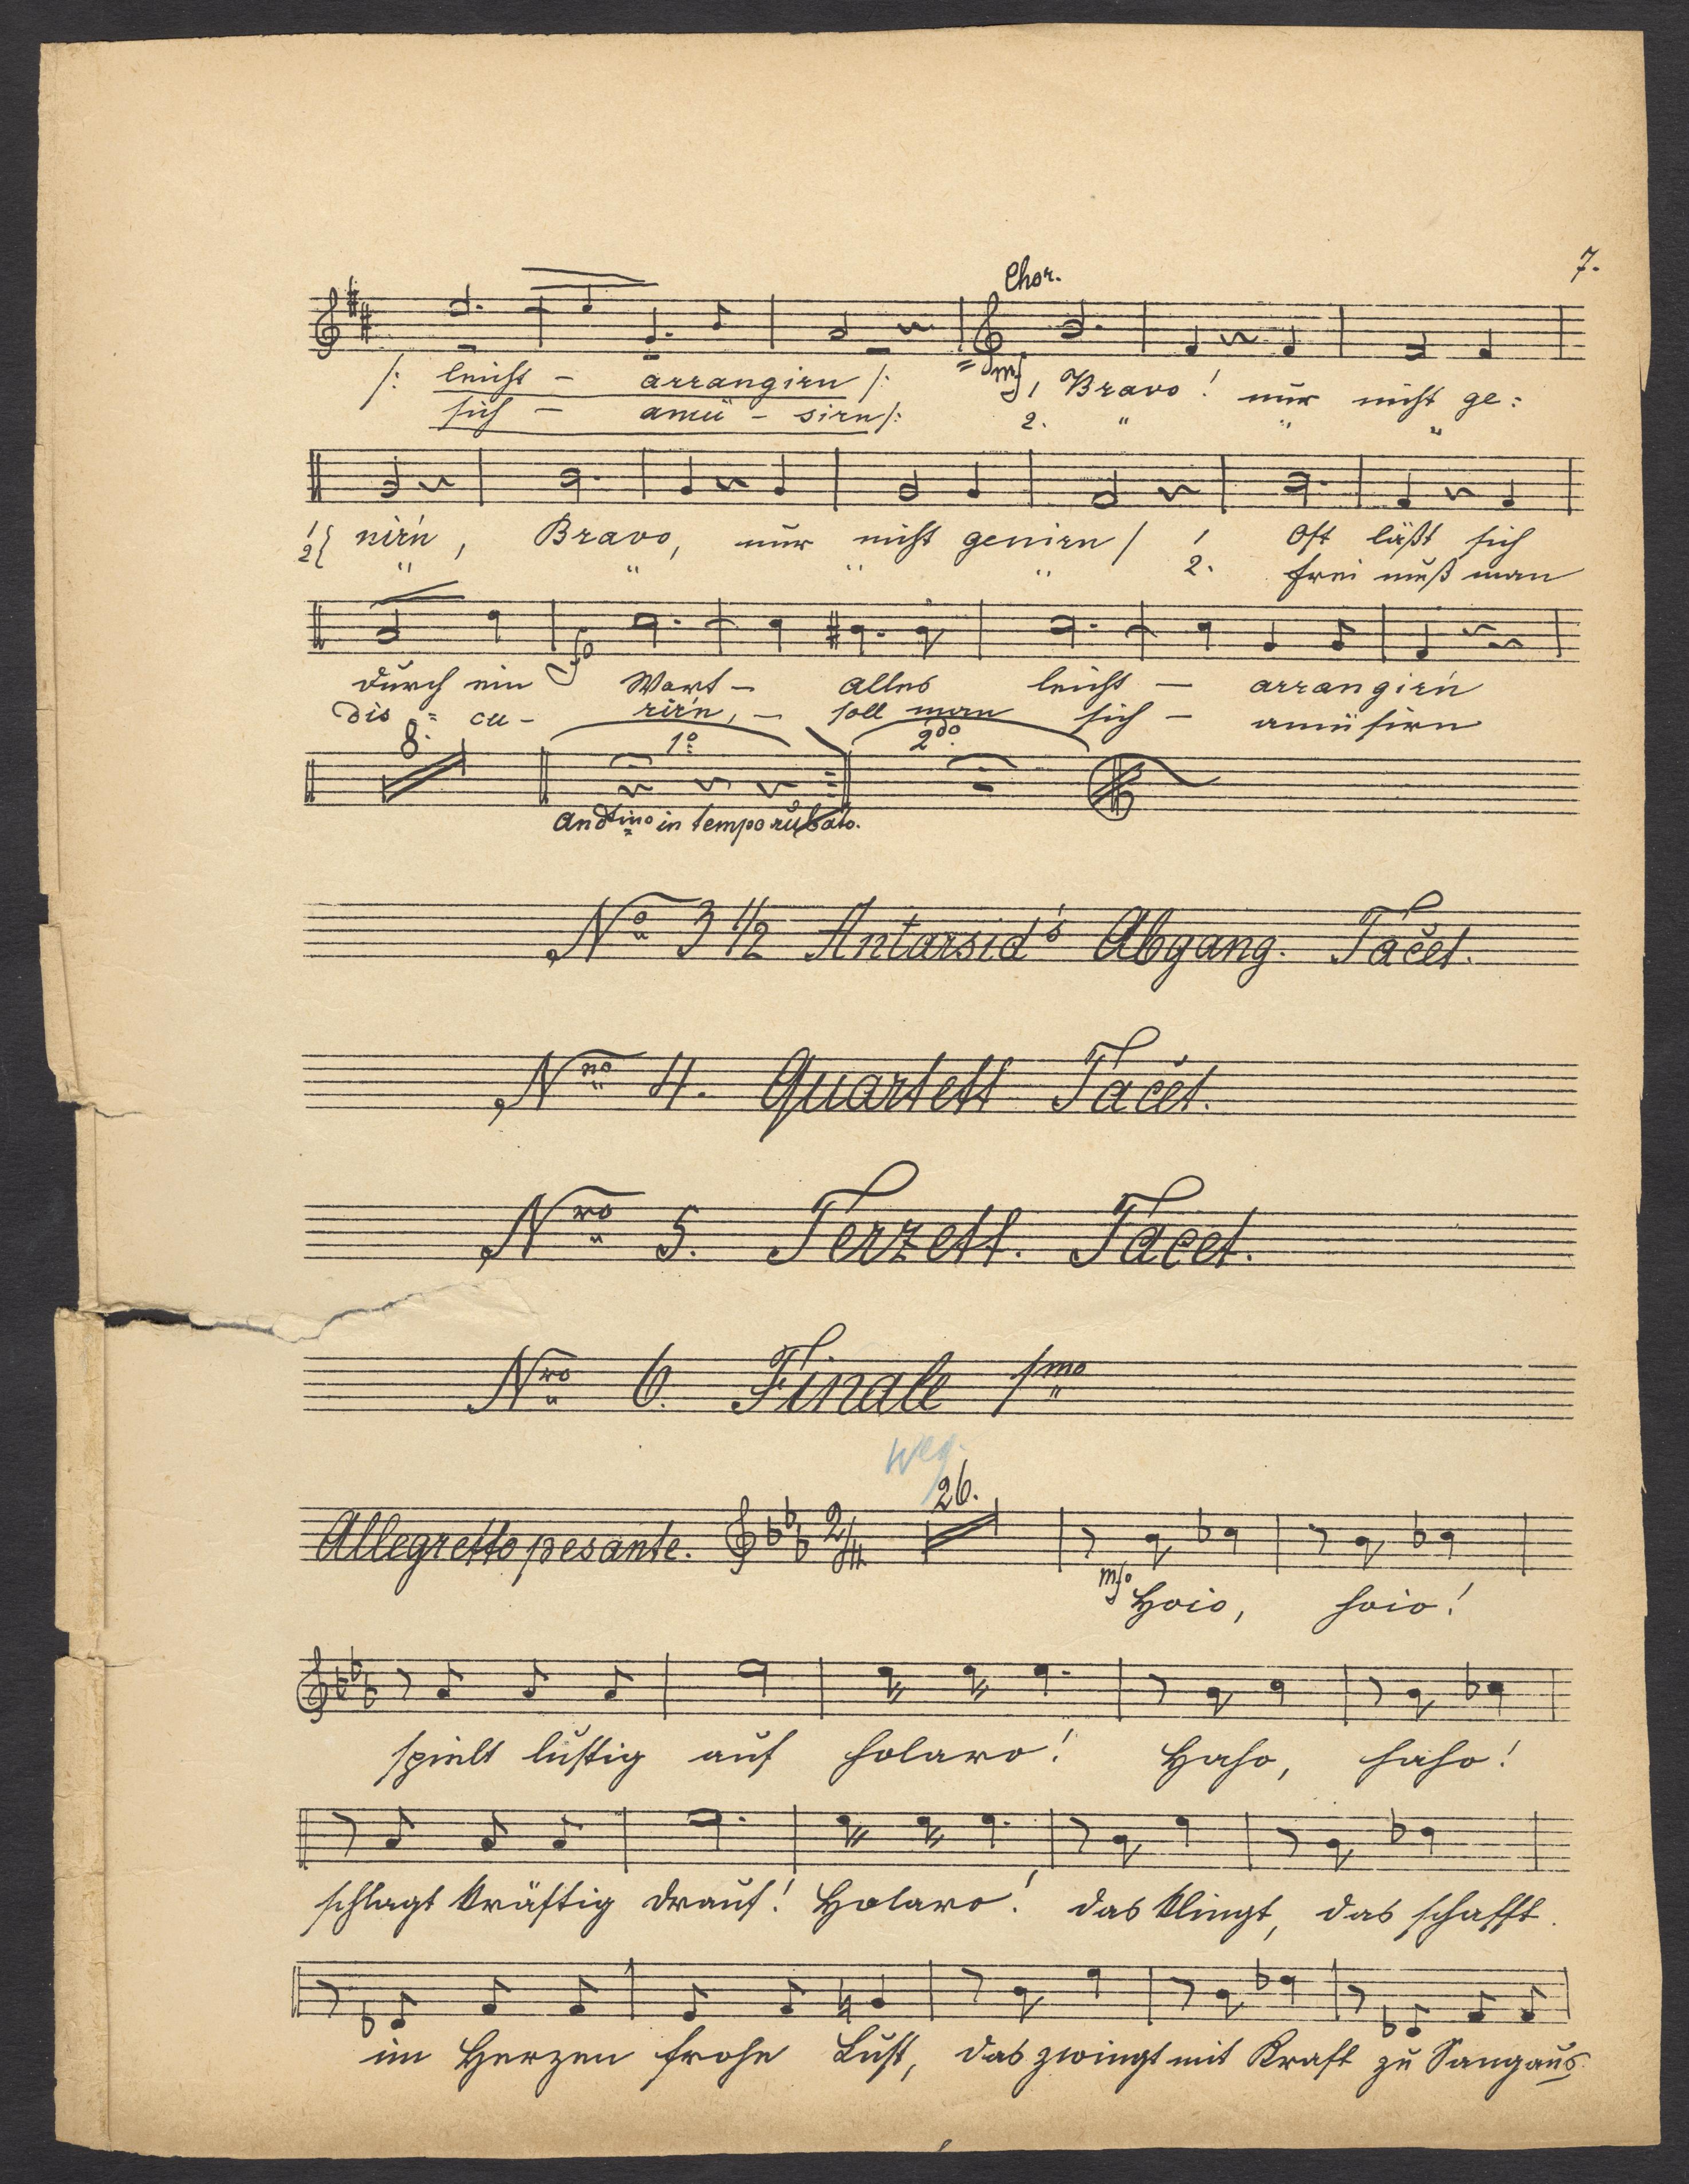 7.
Chor.
/: leicht – arrangirn /: mf 1 Bravo! nur nicht ge=
sich – amü – sirn /: 2. " " "
1 nirn, Bravo, nur nicht genirn / 1 Oft läßt sich
2 " " " " 2. frei muß man
durch ein Wort – alles leicht – arrangirn
dis = cu – rirn, – soll man sich – amüsirn
8. 1o 2do
Andtino in tempo rubato.
No 3 1/2 Antarsid's Abgang. Tacet.
Nro 4. Quartett Tacet.
Nro 5. Terzett. Tacet.
Nro 6. Finale 1mo
weg.
Allegretto pesante. 2/4 26.
mfo Hoio, hoio!
spielt lustig auf holaro! Haho, haho!
schlagt kräftig drauf! Holaro! das klingt, das schafft.
im Herzen frohe Lust, das zwingt mit Kraft zu Sang aus